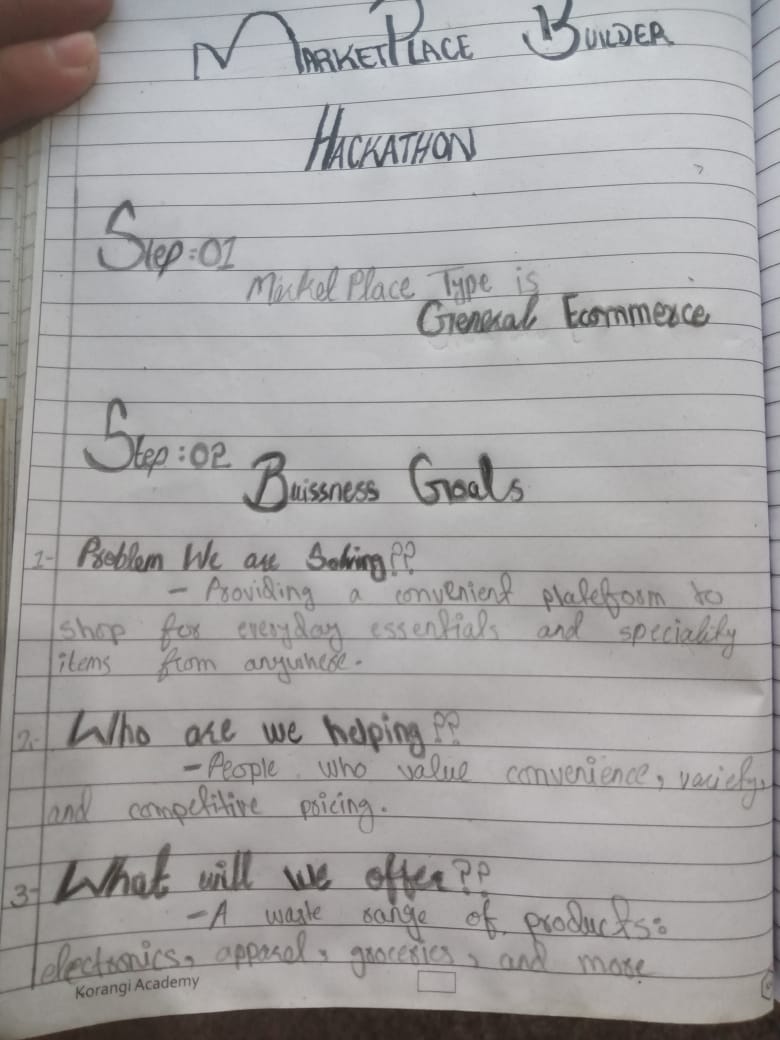 MARKETPLACE BUILDER
HACKATHON
Step:01
Market Place Type is
General Ecommerce
Step:02
Buissness Goals
1- Problem We are Solving??
- Providing a convenient plateform to
shop for everyday essentials and speciality
items from anywhere.
2- Who are we helping??
- People who value convenience, variety,
and competitive pricing.
3- What will we offer??
- A waste range of products:
electronics, apparel, groceries, and more
Korangi Academy